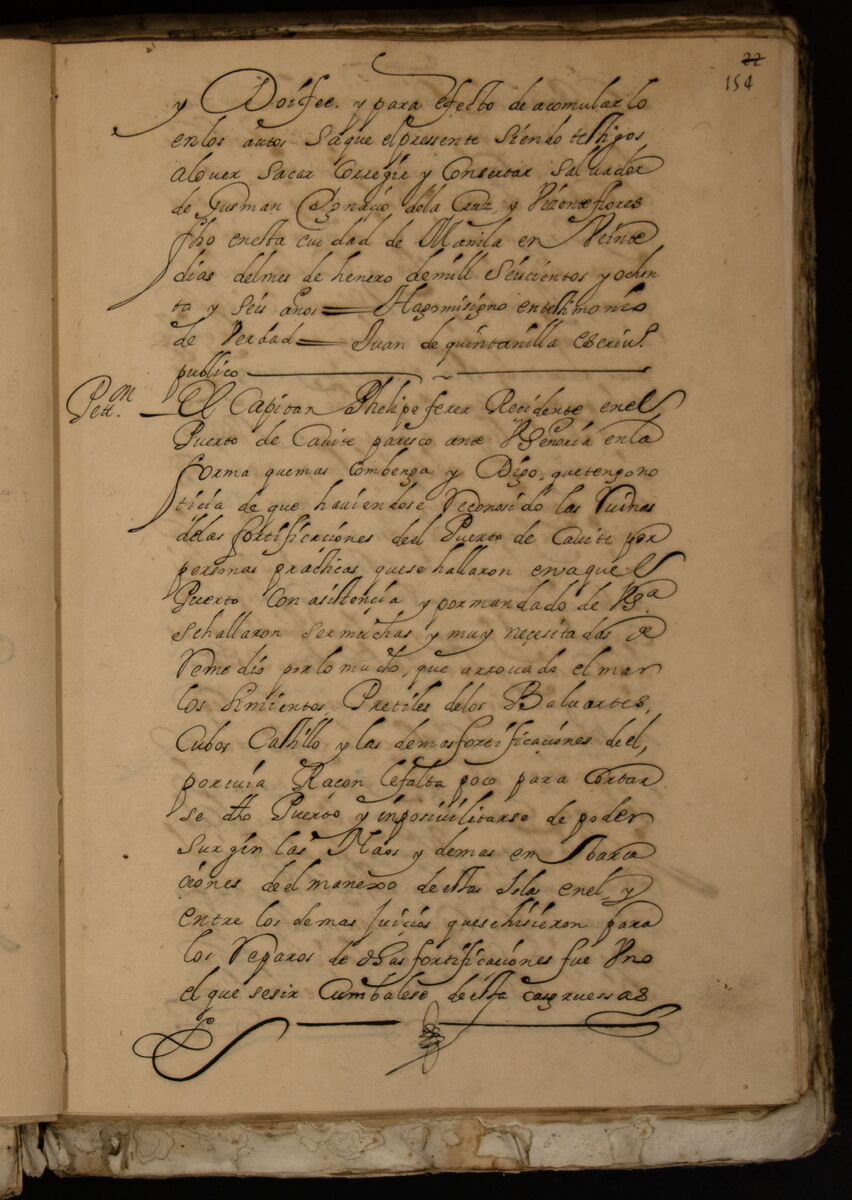 22
154
y Doi fee. y para efecto de acomularlo
en los autos saque el pressente siendo testigos
alover sacar Corregir y Consertar Salvador
de Gusman Ygnacio dela Cruz, y Vizente flores
fho en esta ciudad de Manila en Veinte
dias del mes de henero de mill Seiscientos y ochen
ta y seis años = Hago mi signo en testimonio
de Verdad = Juan de quintanilla escriu.º
publico
Pett.on
El Capitan Phelipe ferer Recidente en el
Puerto de Cavite paresco ante VSeñoria en la
forma que mas Combenga y Digo, que tengo no
ticia de que haviendose Reconosido las Ruinas
delas fortificaciones del Puerto de Cavite por
personas practicas que se hallaron en aquel
Puerto Con asistencia y por mandado de VS.ª
se hallaron ser muchas y muy necesitadas de
Remedio por lo mucho, que a rrovado el mar
los Simientos, Pretiles delos Baluartes,
Cubos Castillo y las demas fortificaciones de el,
por cuia Racon le falta poco para Cortar
se dho Puerto y inposivilitarse de poder
surgir las Naos y demas em Barca
ciones de el manexo de estas Isla en el y
entre los demas juicios que se hisieron para
los Reparos de dhas fortificaciones fue Vno
el que se sir Cumbalese de esta caueruessas